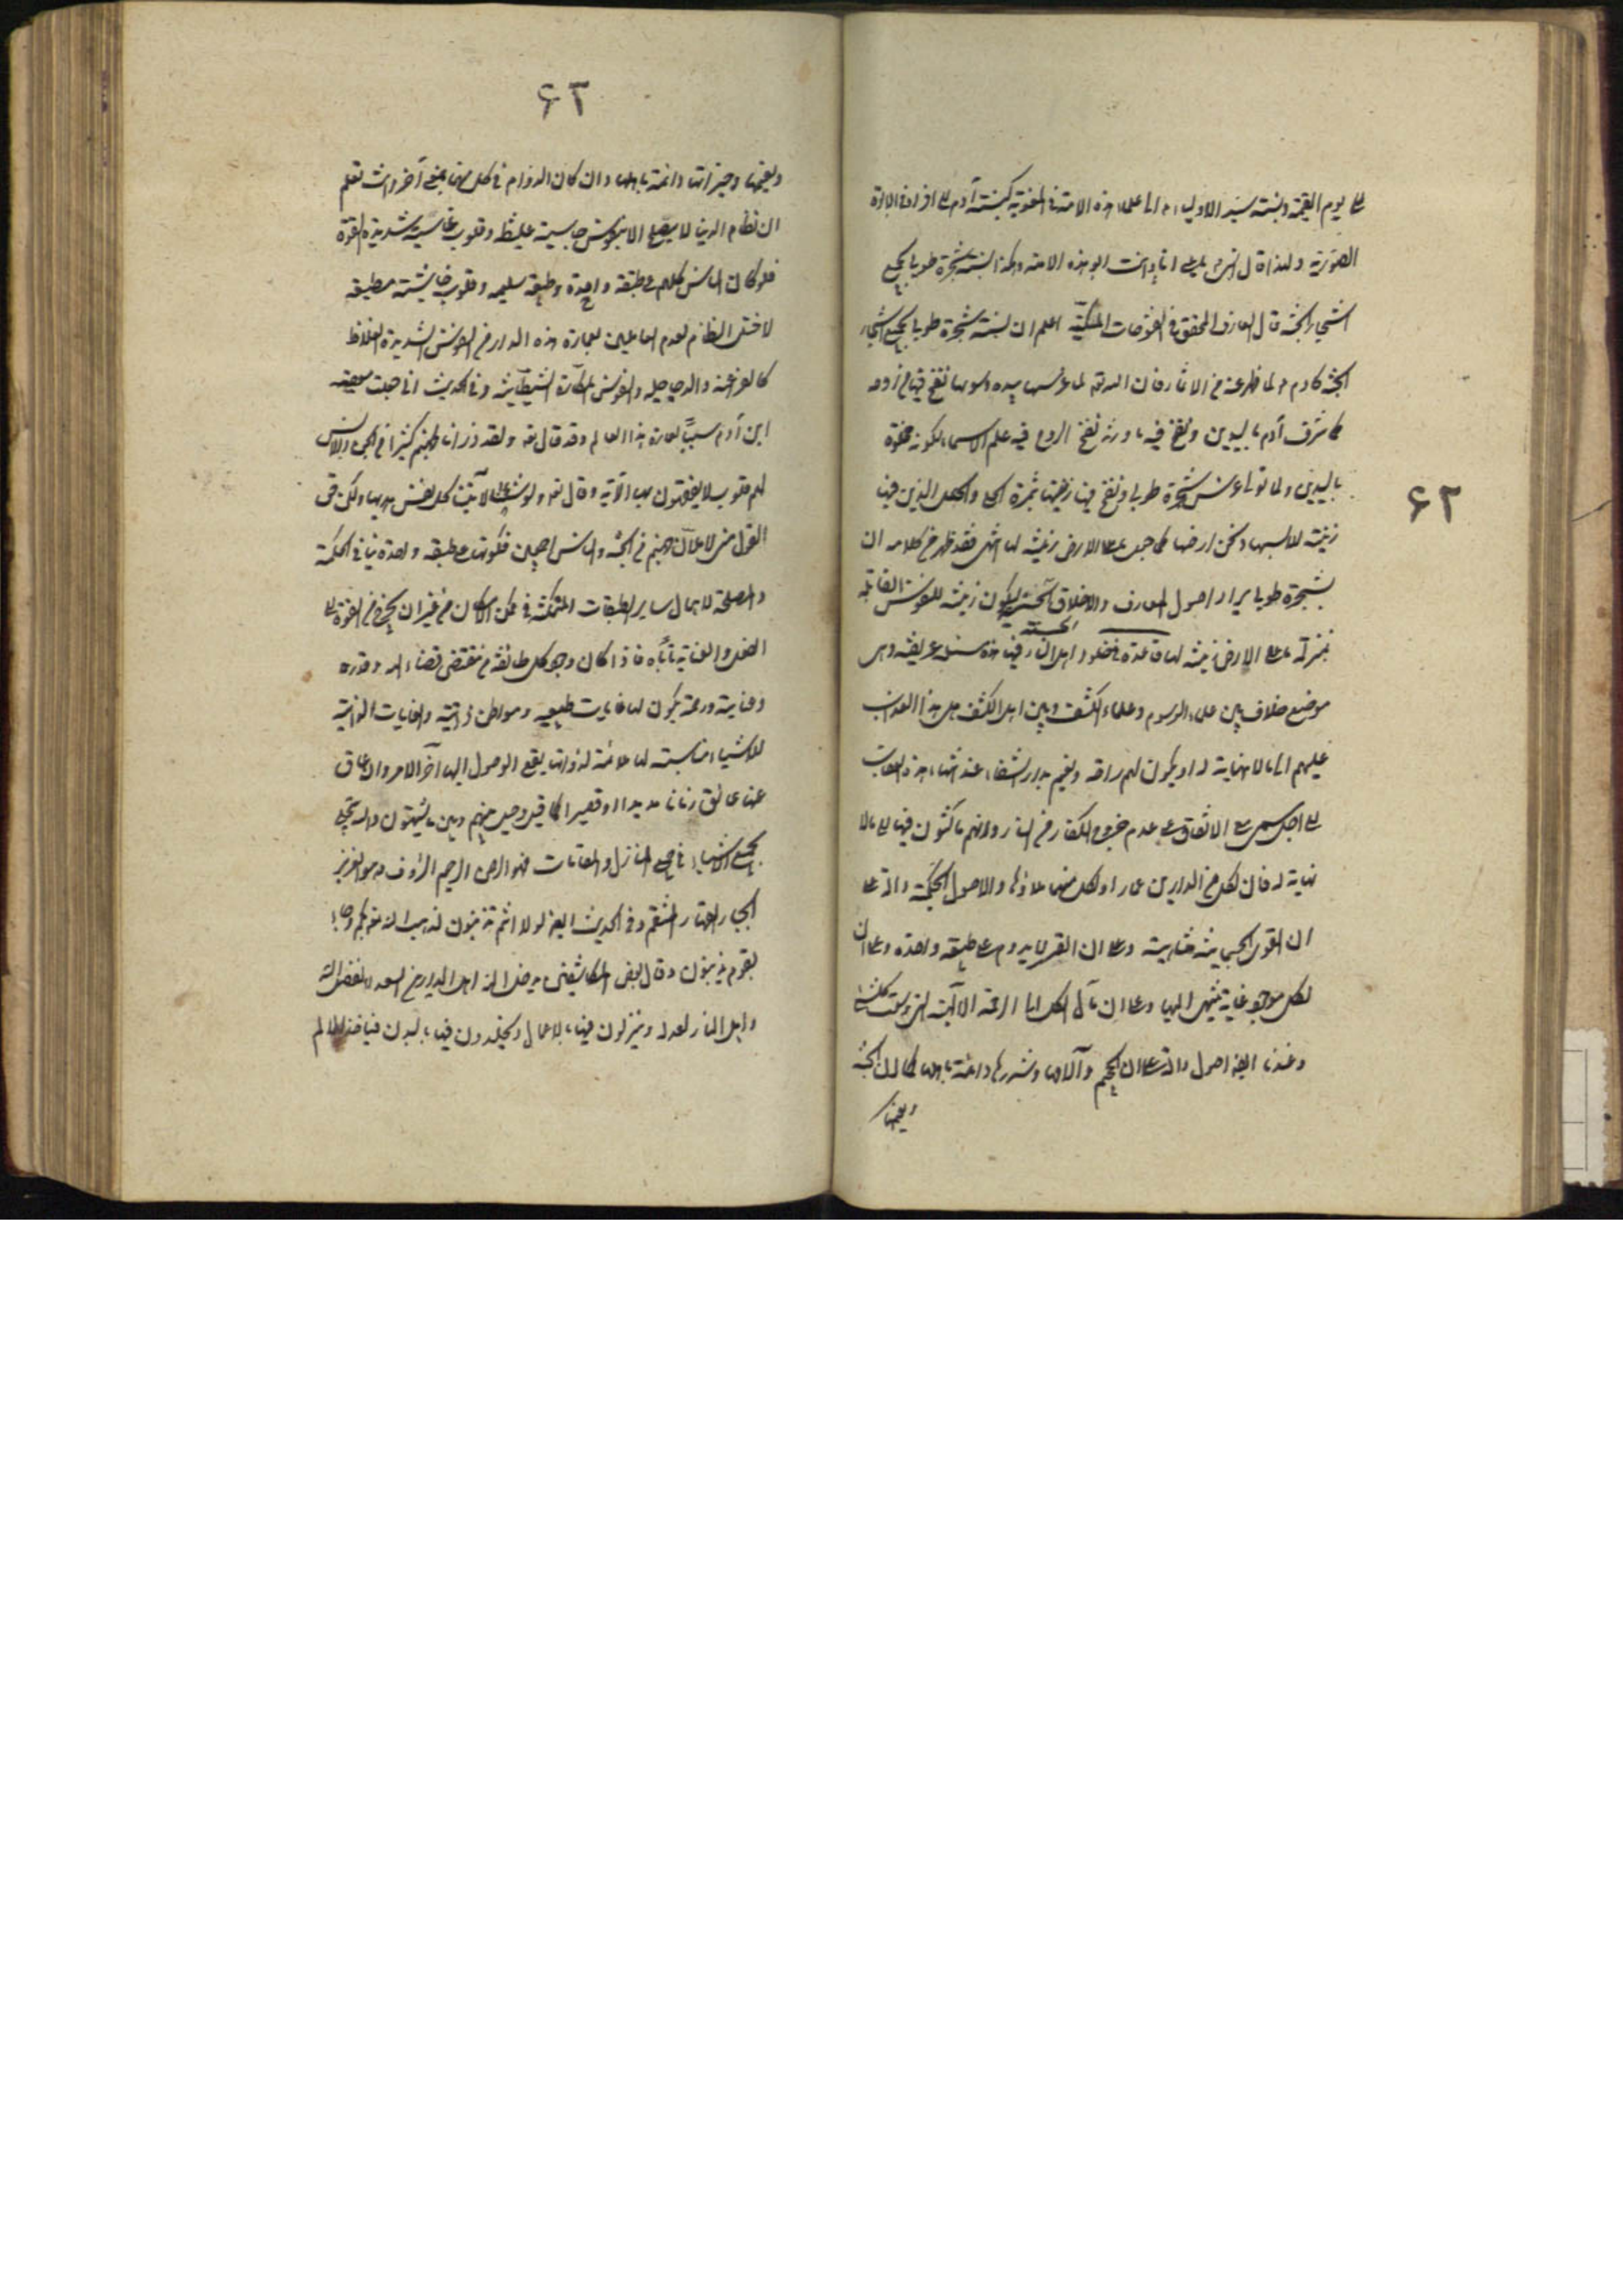 الى يوم القيمة ونسبته سيد الاولياء م الى علماء هذه الامة فى المعنوية كنسبة آدم الى افراده فى الولادة
الصورية ولهذا قال النبى لعلى انا وانت ابوا هذه الامة وكذا نسبة شجرة طوبا لجميع
اشجار الجنة قال العارف المحقق فى الفتوحات المكية اعلم ان نسبة شجرة طوبا لجميع اشجار
الجنة كآدم م لما ظهر عنه من الاثار فان الله تع لما غرسها بيده وسويها نفخ فيها من روحه
كما شرف آدم باليدين ونفخ فيه فاورثه نفخ الروح فيه علم الاسماء لكونه مخلوقا
باليدين ولما تولى غرس شجرة طوبا ونفخ فيها زينها بثمرة الحلى والحلل الذين فيها
زينة للابسها ونحن ارضها كما جعل ما على الارض زينة لها انتهى فقد ظهر من كلامه ان
شجرة طوبا يراد اصول المعارف والاخلاق الحسنة ليكون زينة للنفوس القابلة
بمنزلة ما على الارض زينة لها قاعدة فى خلود اهل النار فيها هذه مسئلة عويصة وهى
موضع خلاف بين علماء الرسوم وعلماء الكشف وبين اهل الكشف هل هذا العذاب
عليهم الى ما لا نهاية له او يكون لهم راقة ونعيم بدار الشقاء عند انتهاء مدة العقاب
الى اجل مسمى مع الاتفاق على عدم خروج الكفار من النار وانهم ماكثون فيها الى ما لا
نهاية له فان لكل من الدارين عمارا ولكل منهما ملاؤها والاصول الحكمية دالة على
ان القوى الجسمانية متناهية وعلى ان القسر لا يدوم على طبيعة واحدة وعلى ان
لكل موجود غاية ينتهى اليها وعلى ان مآل الكل الى الرحمة الالهية التى وسعت كل شئ
وعندنا ايضا اصول دالة على ان الجحيم وآلامها وشرورها دائمة باهلها كما ان الجنة
ونعيمها
ونعيمها وخيراتها دائمة باهلها وان كان الدوام فى كل منهما بمعنى آخر وانت تعلم
ان نظام الدنيا لا يصلح الا بنفوس جاسية غليظة وقلوب قاسية شديدة القوة
فلو كان الناس كلهم على طبقة واحدة وطبيعة سليمه وقلوب خاشية مطيعة
لاختل النظام لعدم القائمين بعمارة هذه الدار من النفوس الشديدة الغلاظ
كالفراعنة والدجاجله والنفوس المكارة الشيطانية وفى الحديث انى جعلت معصية
ابن آدم سببا لعمارة هذا العالم وقد قال تع ولقد ذرانا لجهنم كثيرا من الجن والانس
لهم قلوب لا يفقهون بها الآية وقال تع ولو شئنا لآتينا كل نفس هديها ولكن حق
القول منى لاملأن جهنم من الجنة والناس اجمعين فكونها على طبقة واحدة ينافى الحكمة
والمصلحة لاهمال ساير الطبقات الممكنة فى مكمن الامكان من غير ان يخرج من القوة الى
الفعل والعناية تاباه فاذا كان وجود كل طائفة من مقتضى قضاء الله وقدره
وعنايته ورحمته يكون لها غايات طبيعية ومواطن ذاتية والغايات الذاتية
للاشياء مناسبة لها ملائمة لذواتها يقع الوصول اليها آخر الامر وان عاق
عنها عائق زمانا مديدا او قصيرا كما قيل وحيل بينهم وبين ما يشتهون والله يتجلى
بجميع الاسماء فى جميع المنازل والمقامات فهو الرحمن الرحيم الرؤف وهو العزيز
الجبار القهار المنتقم وفى الحديث ايضا لولا انتم تذنبون لذهب الله بكم وجاء
بقوم يذنبون وقال بعض المكاشفين يدخل الله اهل الدارين السعداء بفضل الله
واهل النار بعدله وينزلون فيهما بالاعمال ويخلدون فيهما بالنيات فياخذ الالم
٤٣
٤٣